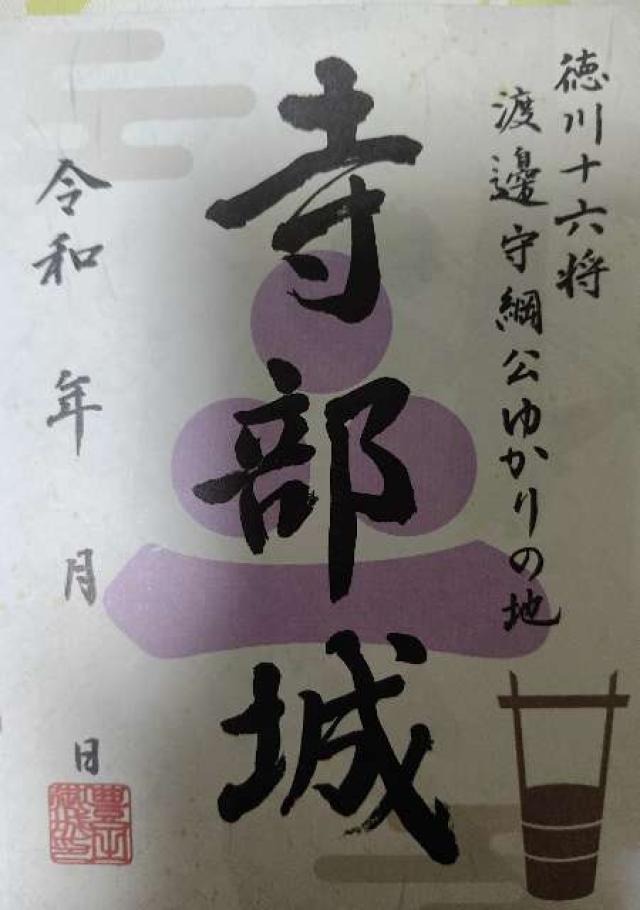 徳川十六将
渡邊守綱公ゆかりの地
寺部城
令和 年 月 日